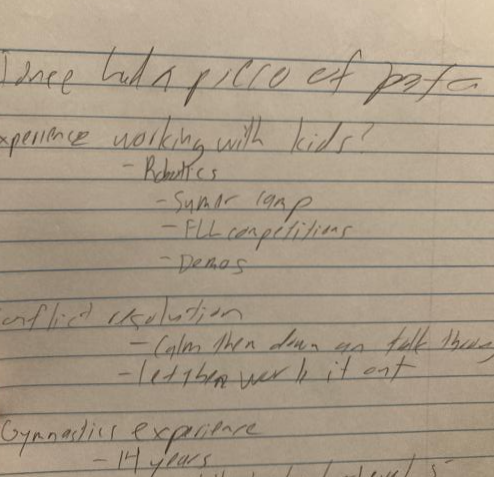 I once had a piece of pasta
xperience working with kids?
- Robotics
- Sumar camp
- FLL competitions
- Demos
onflict resolution
- Calm then down an talk throug
- let then work it out
Gymnastics experience
- 14 years